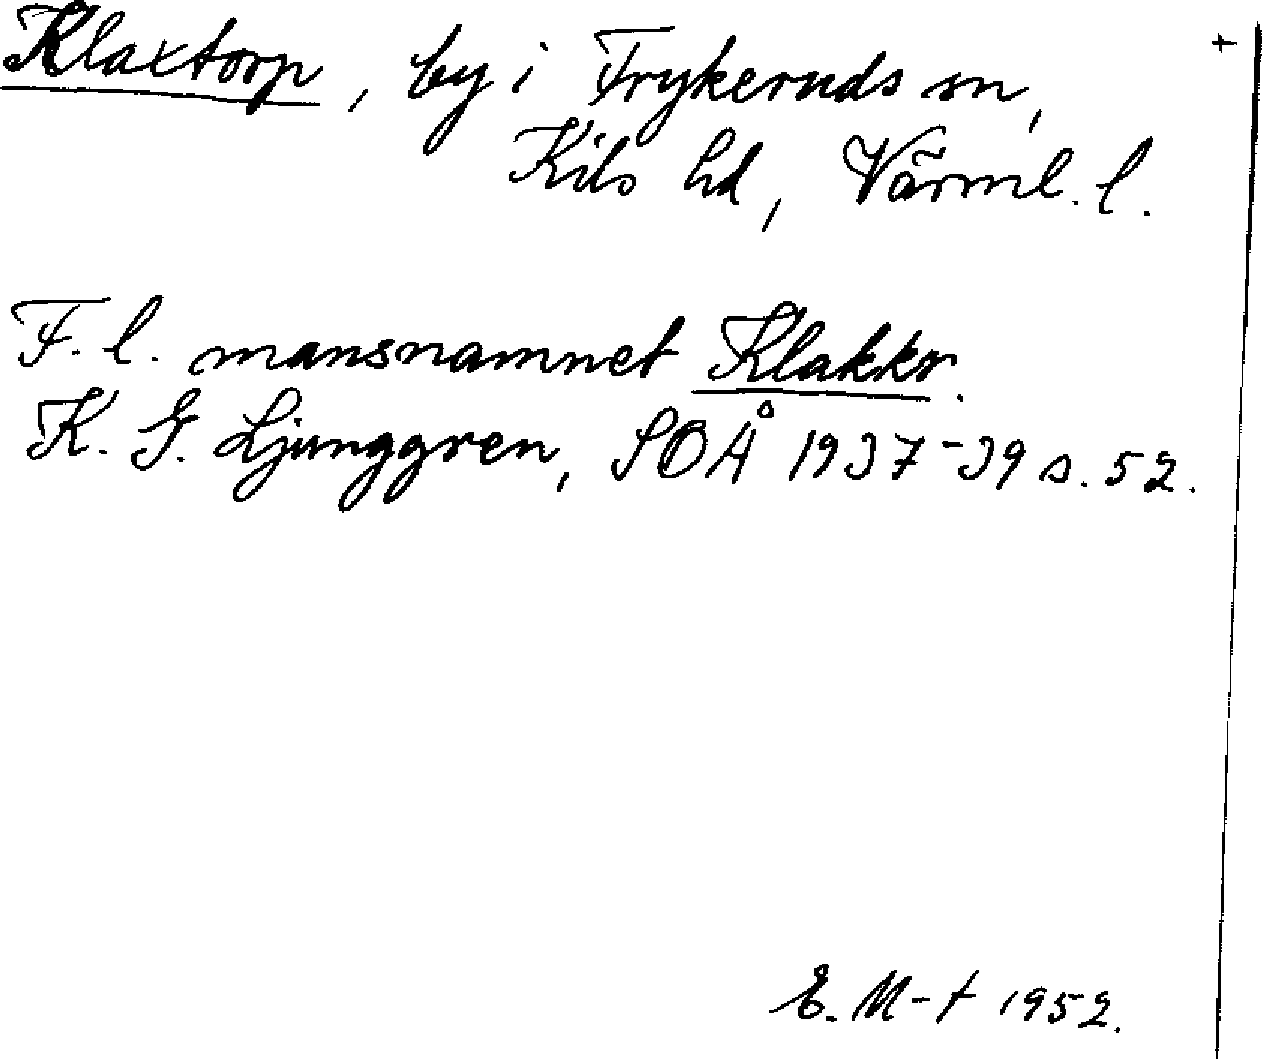 Klaxtorp, by i Frykeruds sn, +
Kils hd, Värml. l.
F. l. mansnamnet Klakkr.
K. G. Ljunggren, SOÅ 1937-39 s. 52.
E. M-t 1952.